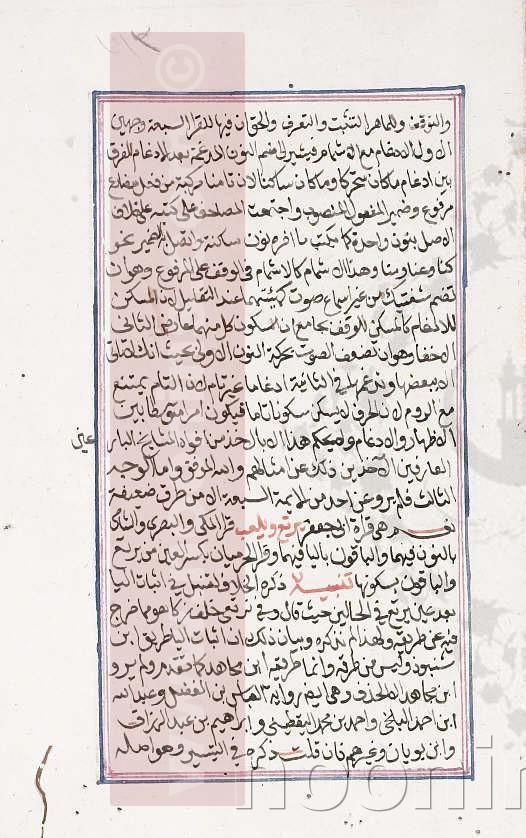 والتوقف وللماهر التثبت والتعرف والحق ان فيها للقرا السبعة وجهين
الاول الادغام مع الاشمام فيشير الى ضم النون المدغمة بعد الادغام للفرق
بين ادغام ما كان متحركا وما كان ساكنا لان تامنا مركبة من فعل مضارع
مرفوع وضمير المفعول المنصوب واجتمعت المصاحف على كتبه على خلاف
الاصل بنون واحدة كما يكتب ما اخره نون ساكنة واتصل به الضمير نحو
كنا وعنا ومنا وهذا الاشمام كالاشمام في الوقف على المرفوع وهو ان
تضم شفتيك من غير اسماع صوت كهيئتهما عند التقبيل لان المسكن
للادغام كالمسكن للوقف بجامع ان السكون كل منهما عارض الثاني
الاخفا وهو ان تضعف الصوت بحركة النون الاولى بحيث انك لا تاتي
الا ببعضها وتدغمها في الثانية ادغاما غير تام لان التام يمتنع
مع الروم لان الحرف لم يسكن سكونا تاما فيكون امرا متوسطا بين
الاظهار والادغام ولا يحكم هذا الا بالاخذ من افواه المشايخ البار
عين
العارفين الاخذين ذلك عن امثالهم والله الموفق واما الوجه
الثالث فلم يرو عن احد من الائمة السبعة الا من طرق ضعيفة
نعم هو قراة ابي جعفر يرتع ويلعب قرا المكي والبصري والشامي
بالنون فيهما والباقون بالياء فيهما وقرا الحرميان بكسر العين من يرتع
والباقون بسكونها تنبيه ذكره الخلاف لقنبل في اثبات اليا
بعد عين يرتع في الحالين حيث قال وفي نرتعي خلف زكا هو مما خرج
فيه عن طريقه ولهذا لم نذكره وبيان ذلك ان اثبات اليا طريق ابن
شنبوذ وليس من طرقه وانما طريقه ابن مجاهد كما تقدم ولم يرو
ابن مجاهد الا الحذف وهي ايضا رواية العباس بن الفضل وعبد الله
ابن احمد البلخي واحمد بن محمد اليقطيني وابراهيم بن عبد الرزاق
وابن بويان وغيرهم فان قلت ذكره في التيسير وهو اصله
noorin